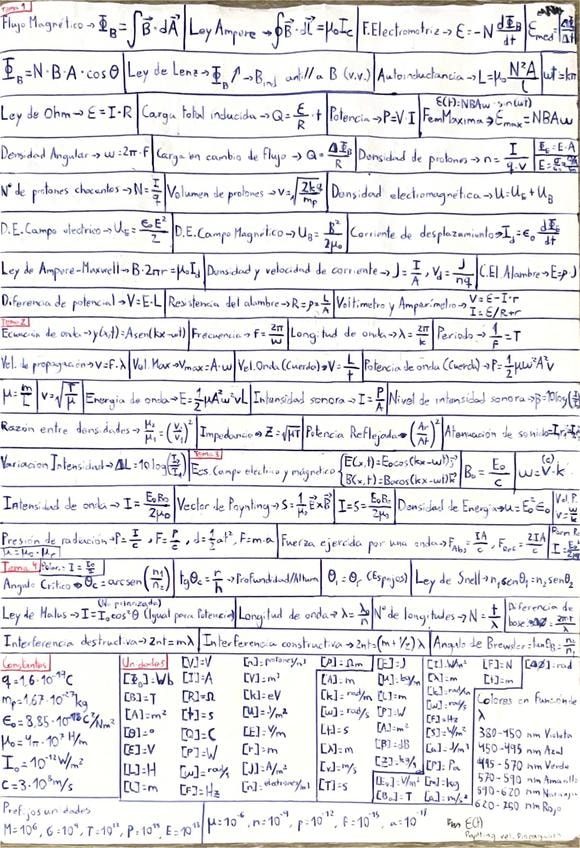 Tema 1
Flujo Magnético → Φ_B = ∫B⃗·dA⃗ | Ley Ampere → ∮B⃗·dl⃗ = μ₀I_c | F. Electromotriz → ε = -N dΦ_B/dt | ε_med = ΔΦ/Δt
Φ_B = N·B·A·cosθ | Ley de Lenz → Φ_B↑ → B_ind anti// a B (v.v.) | Autoinductancia → L = μ₀ N²A/l | ωt = km
Ley de Ohm → ε = I·R | Carga total inducida → Q = ε/R · t | Potencia → P = V·I | ε(t) = NBAω · sin(ωt)
Fem Maxima → ε_max = NBAω
Densidad Angular → ω = 2π·f | Carga en cambio de flujo → Q = ΔΦ_B/R | Densidad de protones → n = I/q·v | Φ_E = E·A
N° de protones chocantes → N = I/q | Volumen de protones → v = √(2k_q/m_p) | Densidad electromagnética → u = U_E + U_B
D.E. Campo electrico → U_E = ε₀E²/2 | D.E. Campo Magnetico → U_B = B²/2μ₀ | Corriente de desplazamiento → I_d = ε₀ dΦ_E/dt
Ley de Ampere-Maxwell → B·2πr = μ₀I_d | Densidad y velocidad de corriente → J = I/A, V_d = J/nq | C.El. Alambre → E = ρ·J
Diferencia de potencial → V = E·L | Resistencia del alambre → R = ρ L/A | Voltimetro y Amperímetro → V = ε-I·r
I = ε/R+r
Tema 2
Ecuación de onda → y(x,t) = Asen(kx-ωt) | Frecuencia → f = 2π/ω | Longitud de onda → λ = 2π/k | Periodo → 1/f = T
Vel. de propagación → v = F·λ | Vel. Max → v_max = A·ω | Vel. Onda (Cuerda) → V = L/t | Potencia de onda (Cuerda) → P = ½μω²A²v
μ = m/L | v = √(T/μ) | Energía de onda → E = ½μA²ω²vL | Intensidad sonora → I = P/A | Nivel de intensidad sonora → β = 10log
Razón entre densidades → μ₂/μ₁ = (v₁/v₂)² | Impedancia → Z = √μT | Potencia Reflejada → (Ar/Ai)² | Atenuación de sonido
Tema 3
Variación Intensidad → ΔL = 10log | Ecs. Campo electrico y magnético { E(x,t) = E₀cos(kx-ωt)j⃗
B(x,t) = B₀cos(kx-ωt)k⃗ | B₀ = E₀/c | ω = V·k (c)
Intensidad de onda → I = E₀B₀/2μ₀ | Vector de Poynting → S = 1/μ₀ E⃗xB⃗ | I = S = E₀B₀/2μ₀ | Densidad de Energía → u = E₀²ε₀ | Vel. P. V = ω/k
Presión de radiación → P = I/c, F = P/c, d = ½at², F = m·a | Fuerza ejercida por una onda → F_Abs = IA/c, F_Ref = 2IA/c
μ = μ₀·μᵣ
Tema 4
Angulo Crítico → θ_c = arcsen(n₁/n₂) | tgθ_c = r/h → Profundidad/Altura | θᵢ = θᵣ (Espejos) | Ley de Snell → n₁senθ₁ = n₂senθ₂
Ley de Malus → I = I₀cos²θ (Igual para Potencia) | Longitud de onda → λ = λ₀/n | N° de longitudes → N = t/λ | Diferencia de
(No polarizada)
Interferencia destructiva → 2nt = mλ | Interferencia constructiva → 2nt = (m+½)λ | Angulo de Brewster → tanθ_B = n₂/n₁
Constantes
q = 1.6·10⁻¹⁹C
m_p = 1.67·10⁻²⁷kg
ε₀ = 8,85·10⁻¹² C²/Nm²
μ₀ = 4π·10⁻⁷ H/m
I₀ = 10⁻¹² W/m²
c = 3·10⁸ m/s
Unidades
[Φ_B] = Wb
[B] = T
[A] = m²
[θ] = °
[ε] = V
[L] = H
[l] = m
[V] = V
[I] = A
[R] = Ω
[t] = s
[Q] = C
[P] = W
[ω] = rad/s
[F] = Hz
[n] = protones/m³
[v] = m/s
[k] = eV
[u] = J/m³
[E] = V/m
[r] = m
[J] = A/m²
[n] = electrones/m³
[ρ] = Ωm
[A] = m
[k] = rad/m
[ω] = rad/s
[t] = s
[λ] = m
[v] = m/s
[T] = s
[E] = J
[μ] = kg/m
[T] = N
[P] = W
[A] = m
[β] = dB
[Z] = kg/s
[E₀] = V/m
[B₀] = T
[I] = W/m²
[L] = m
[k] = rad/m
[ω] = rad/s
[F] = Hz
[S] = W/m²
[u] = J/m³
[P] = Pa
[m] = kg
[a] = m/s²
[F] = N
[t] = m
[ΔØ] = rad
Colores en función de
λ
380-450 nm Violeta
450-495 nm Azul
495-570 nm Verde
570-590 nm Amarillo
590-620 nm Naranja
620-750 nm Rojo
Prefijos unidades
M = 10⁶, G = 10⁹, T = 10¹², P = 10¹⁵, E = 10¹⁸ | μ = 10⁻⁶, n = 10⁻⁹, p = 10⁻¹², f = 10⁻¹⁵, a = 10⁻¹⁸